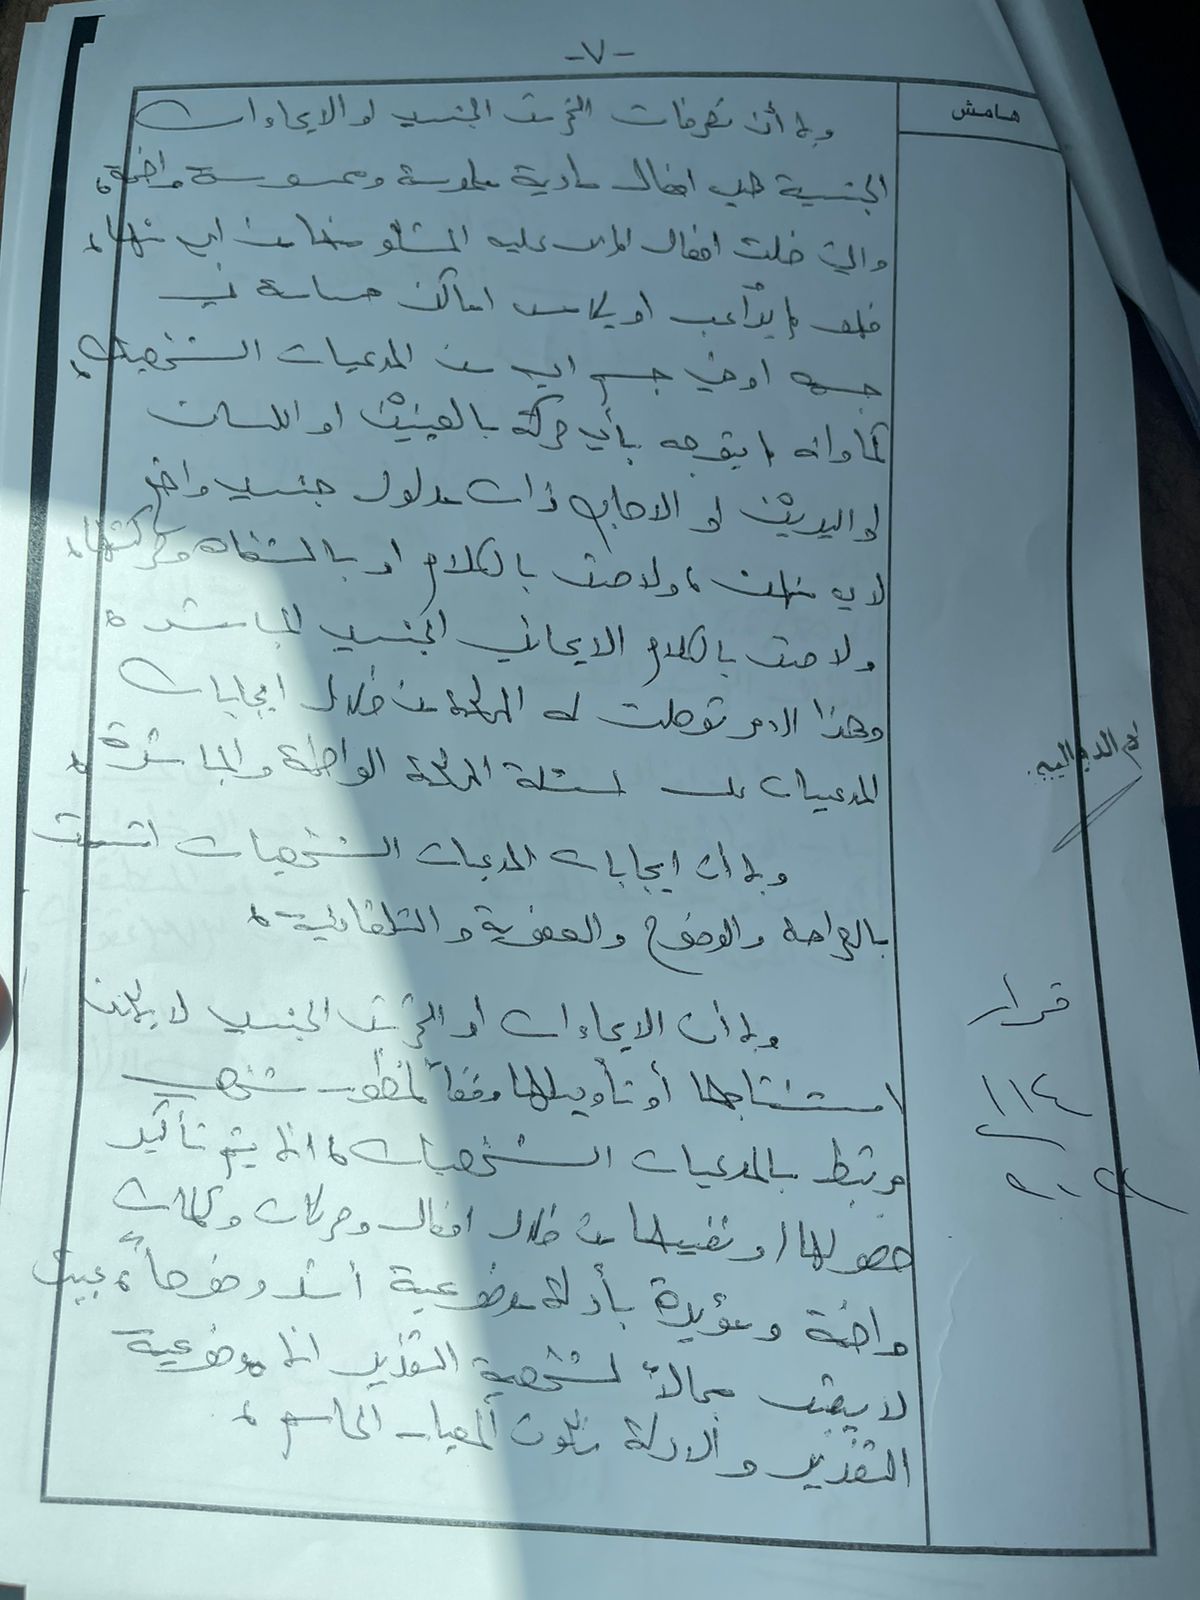 -٧-
هامش
وبما أن تصرفات التحرش الجنسي او الايحاءات
الجنسية هي افعال مادية ملموسة ومحسوسة واضحة،
والتي خلت افعال المدعى عليه المشكو منها من اي منها،
فلم يداعب او يلامس اماكن حساسة في
جسمه او في جسم اي من المدعيات الشخصيات،
كما وانه لم يتوجه بأي حركة بالعينين او اللسان
او اليدين او الاصابع ذات مدلول جنسي واضح
لاي منهن، ولا حتى بالكلام او بالشفاه وحركتها،
ولا حتى بالكلام الايحائي الجنسي المباشر،
وهذا الامر توصلت له المحكمة من خلال ايجابات
المدعيات على اسئلة المحكمة الواضحة والمباشرة،
وبما أن ايجابات المدعيات الشخصيات اتسمت
بالصراحة والوضوح والعفوية والتلقائية،
وبما أن الايحاءات أو التحرش الجنسي لا يمكن
استنتاجها أو تأويلها وفقاً لمنظور شخصي
مرتبط بالمدعيات الشخصيات، انما يتم تأكيد
حصولها او نفيها من خلال افعال وحركات وكلمات
واضحة ومؤيدة بأدلة موضوعية أشد وضوحاً، بحيث
لا يبقى مجالاً لشخصية التقدير انما موضوعية
التقدير والادلة تكون المعيار الحاسم،
قرار
١١٤